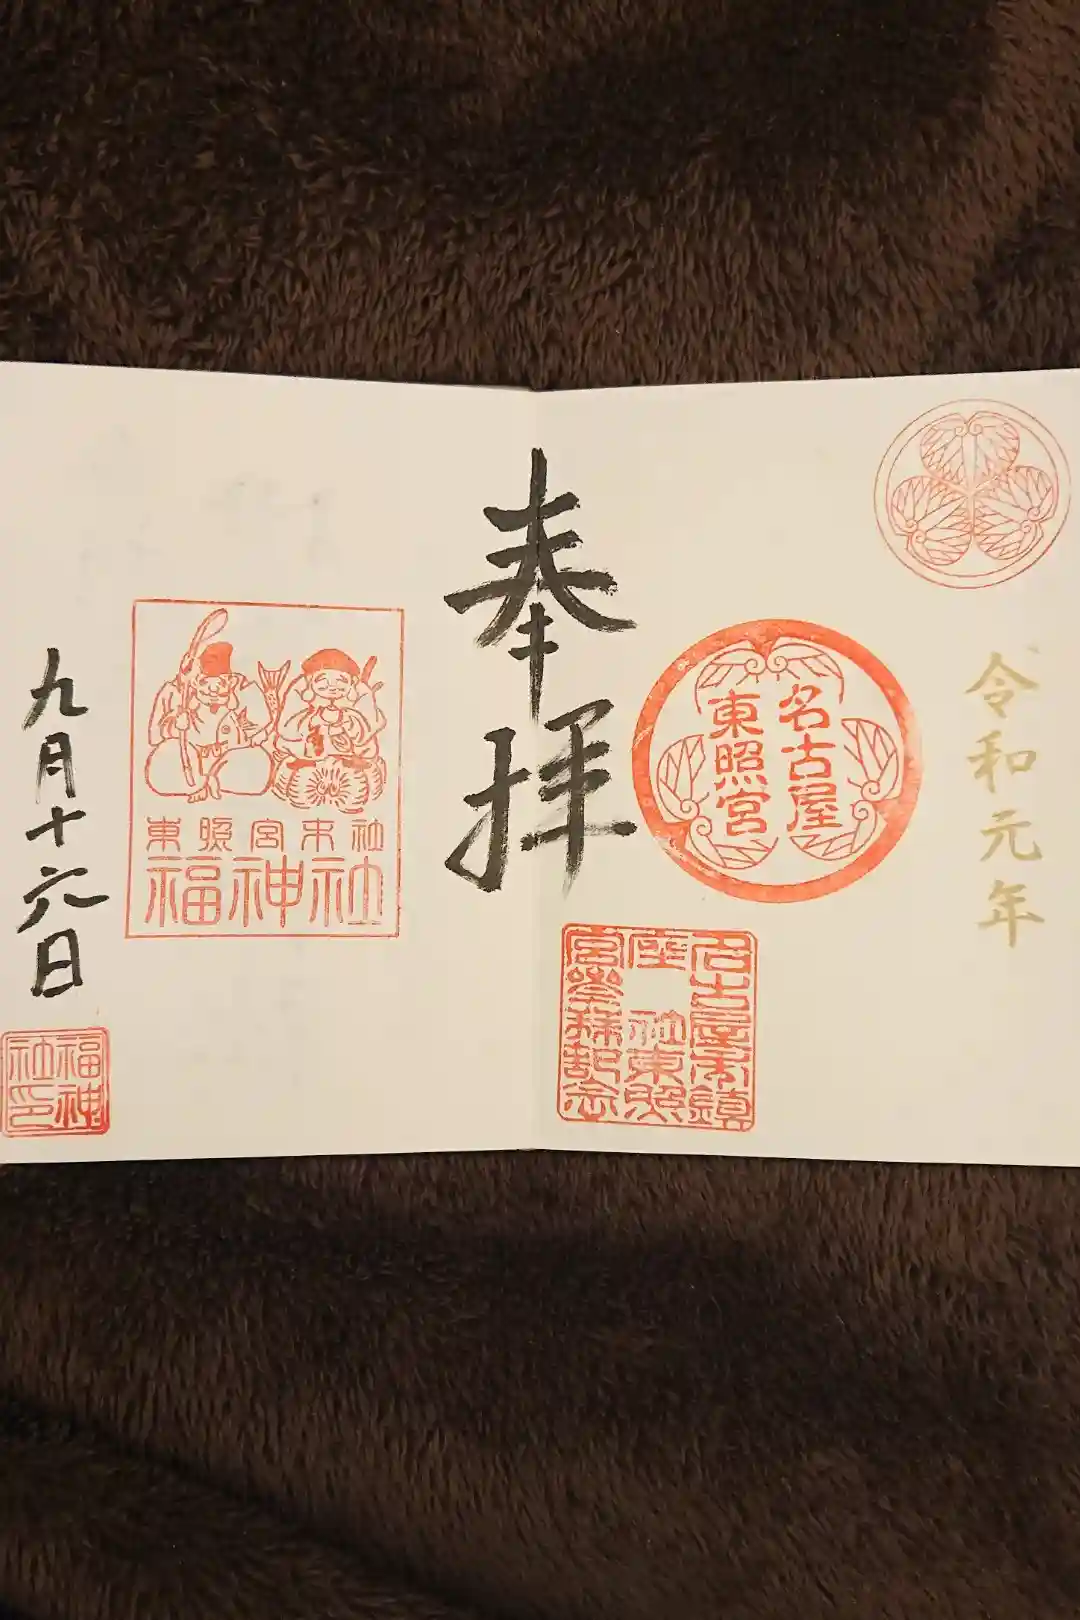 令和元年
名古屋
東照宮
名古屋市鎮
座 社東照
宮参拝記念
奉拝
東照宮末社
福神社
九月十六日
福神
社印